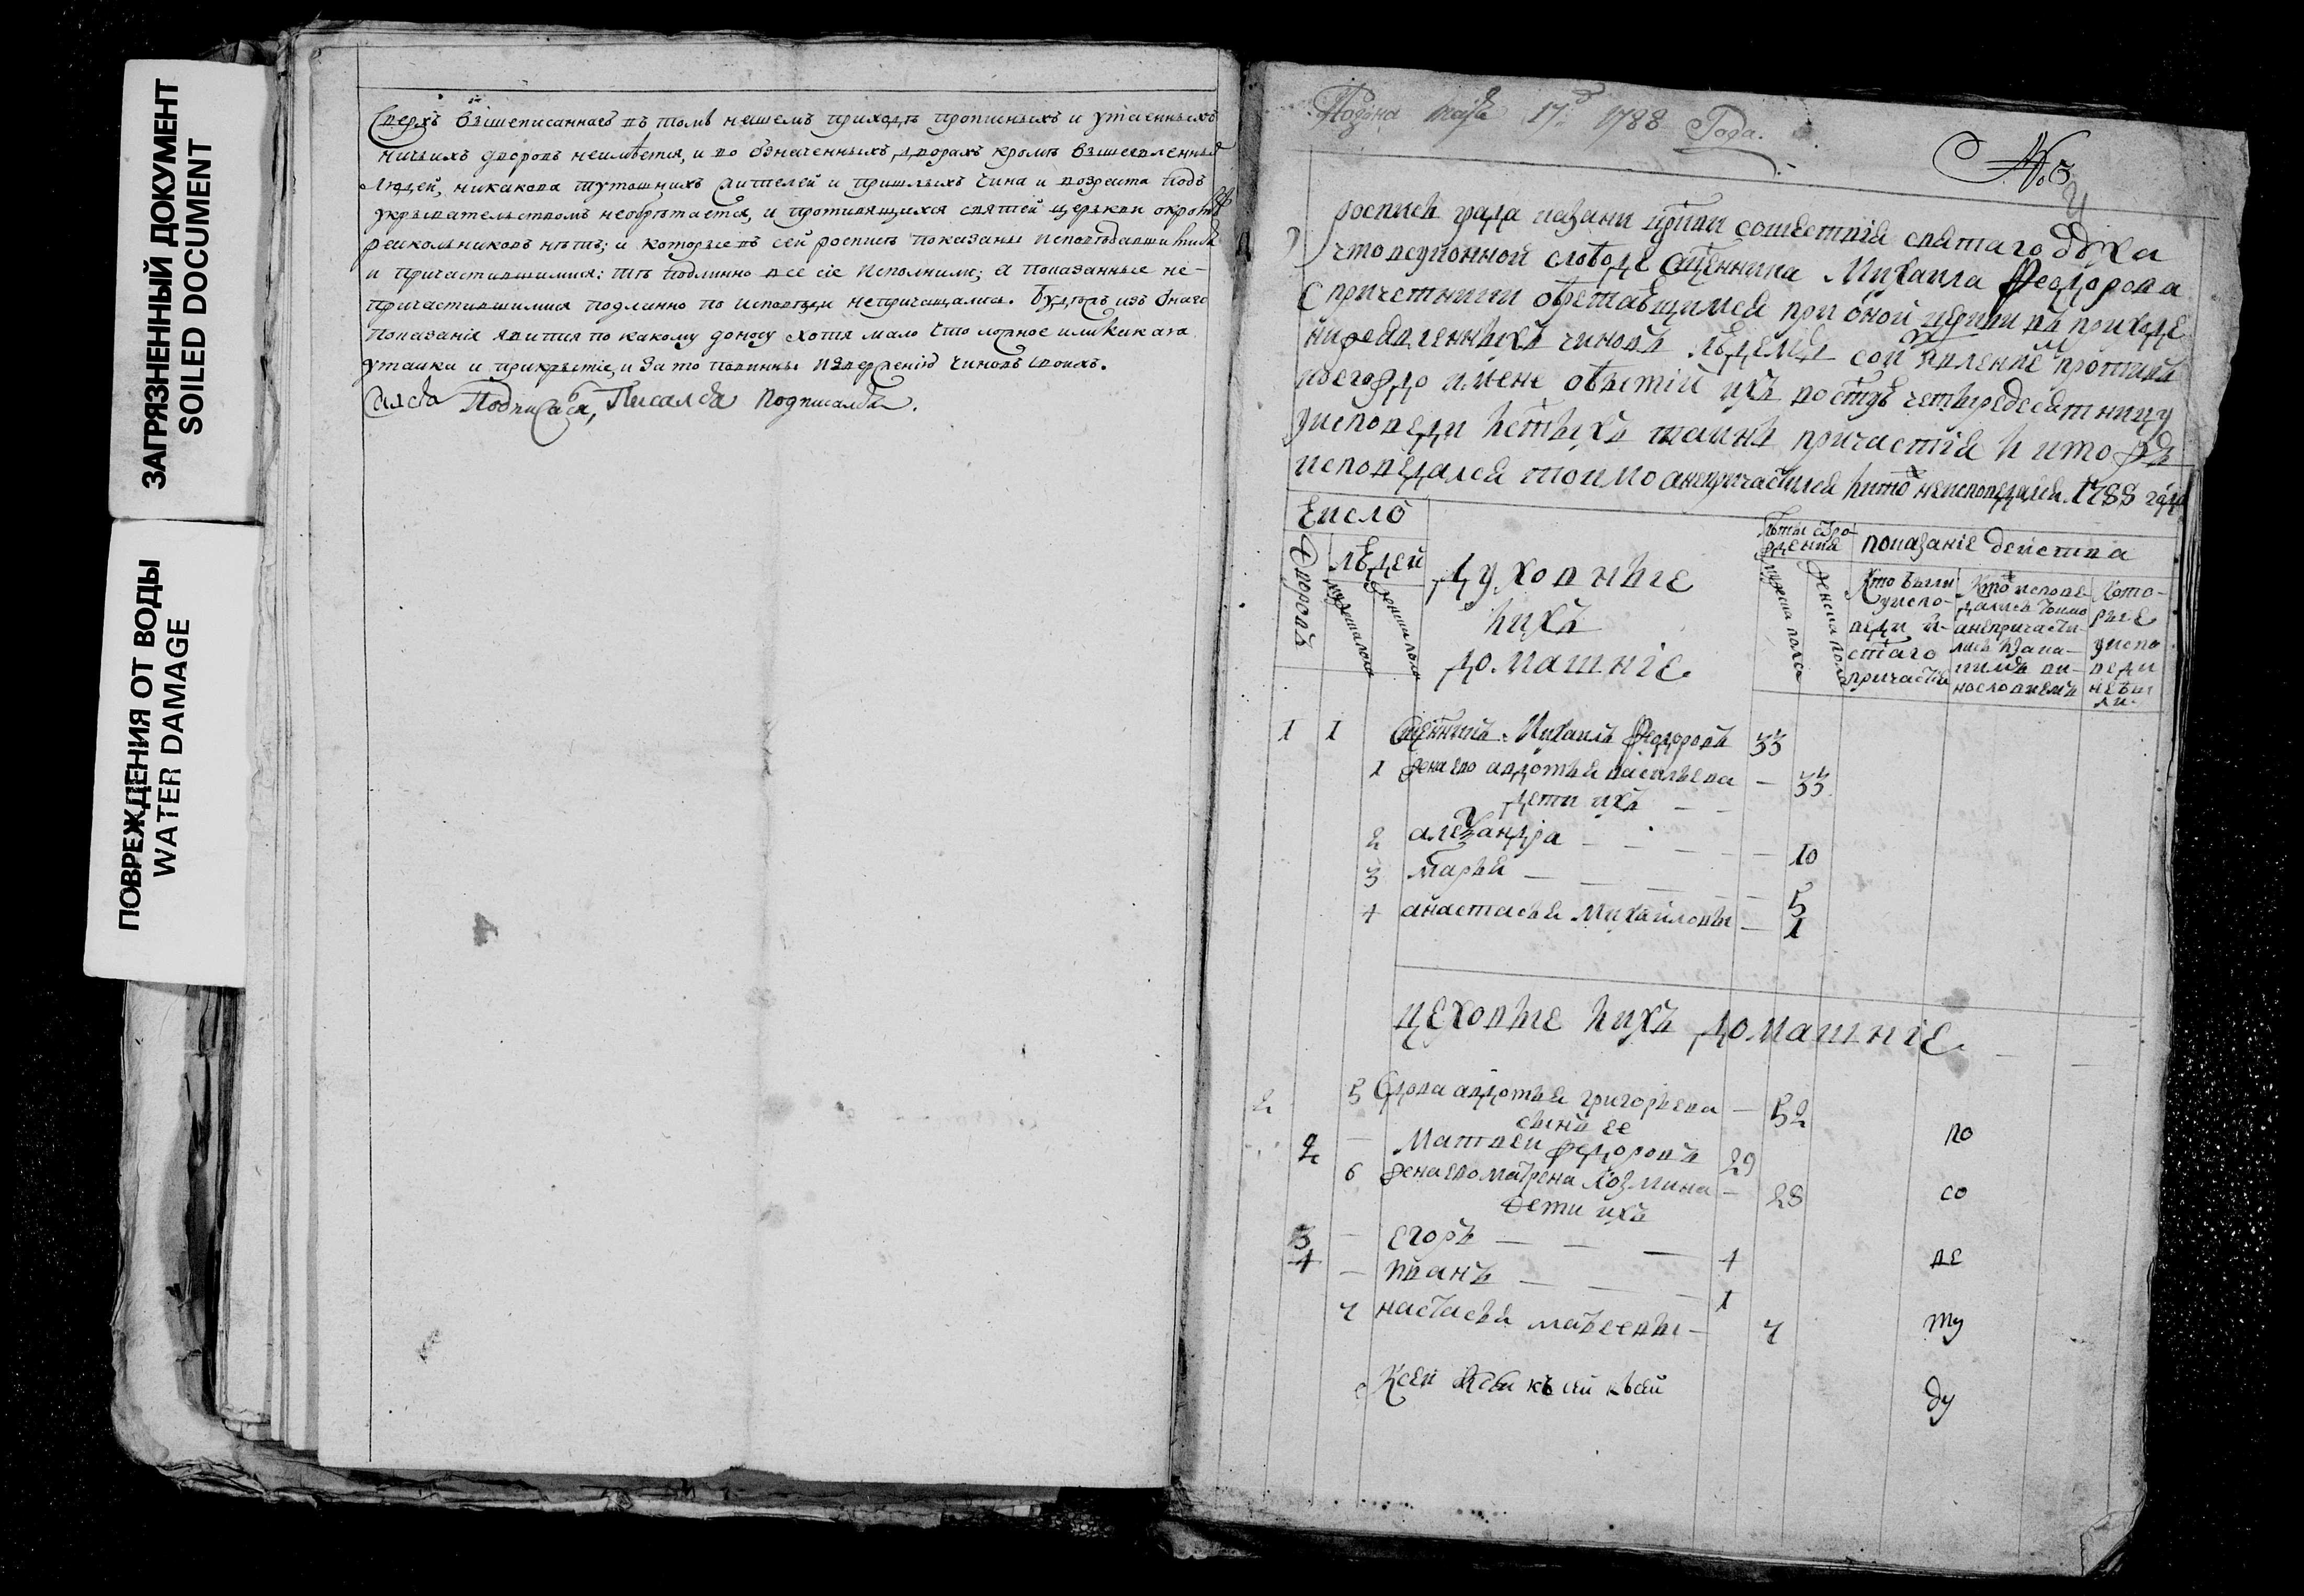 ЗАГРЯЗНЕННЫЙ ДОКУМЕНТ
SOILED DOCUMENT
ПОВРЕЖДЕНИЯ ОТ ВОДЫ
WATER DAMAGE
Сверхъ вышеписаннаго въ томъ нашемъ приходѣ прописныхъ и утаенныхъ
ничьихъ дворовъ неимѣется, и во означенныхъ дворахъ кромѣ вышеявленныхъ
людей, никакова тутошнихъ жителей и пришлыхъ чина и возраста подъ
укрывательствомъ необрѣтается, и противящихся святей церькви окромѣ
раскольниковъ нѣтъ; и которые въ сей росписѣ показаны исповѣдавшимися
и причастившимися: тѣ подлинно все сіе исполнили; а показанные не-
причастившимися подлинно по исповѣди непричащались. Будѣже изъ онаго
показанія явится по какому доносу хотя мало что ложное или какая
утайка и прикрытіе, и за то повинны изверженію чиновъ своихъ.
Подписался, Писалса Подписалса.
Подана маія 17 1788 Года.
№ 3
роспись града казани цркви сошествія святаго духа
что всуконной слободе сщенника Михаила Федорова
спричетники обретающимся при оной церкви въ приходе
нижеявленныхъ чиновъ людемъ со изъявлением противъ
коегождо имене обытіи ихъ востую четыредесятницу
уисповеди истыхъ таинъ причастія и кто жъ
исповедался токмо анепричастился икто неисповедался. 1788 года
Число
Дворовъ
людей
мужеска пола
женска пола
Духовныіе
ихъ
домашніе
Лѣты отро-
ждения
мужеска пола
женска пола
показаніе действа
Кто были
уиспо-
веди и
стаго
причастія
Кто испове-
дались токмо
анепричасти-
лись и зака-
кимъ ви-
нословиемъ
Кото-
рые
уиспо
веди
небы
ли.
1 1 Сщенникъ Михаилъ Федоровъ 33
1 жена ево авдотья васильева — 33
дети ихъ — —
2 александра — — — — 10
3 марья — — — — 5
4 анастасья Михайловы — 1
цеховые ихъ домашніе.
2 5 Вдова авдотья григорьева — 52
сынъ ее
2 — Матвеи федоровъ 29
6 жена ево матрена Козмина — 28
дети ихъ
3 — егоръ — — — 4
4 — иванъ — — 1
7 настасья матвеевы — 7
во
со
ве
ту
ду